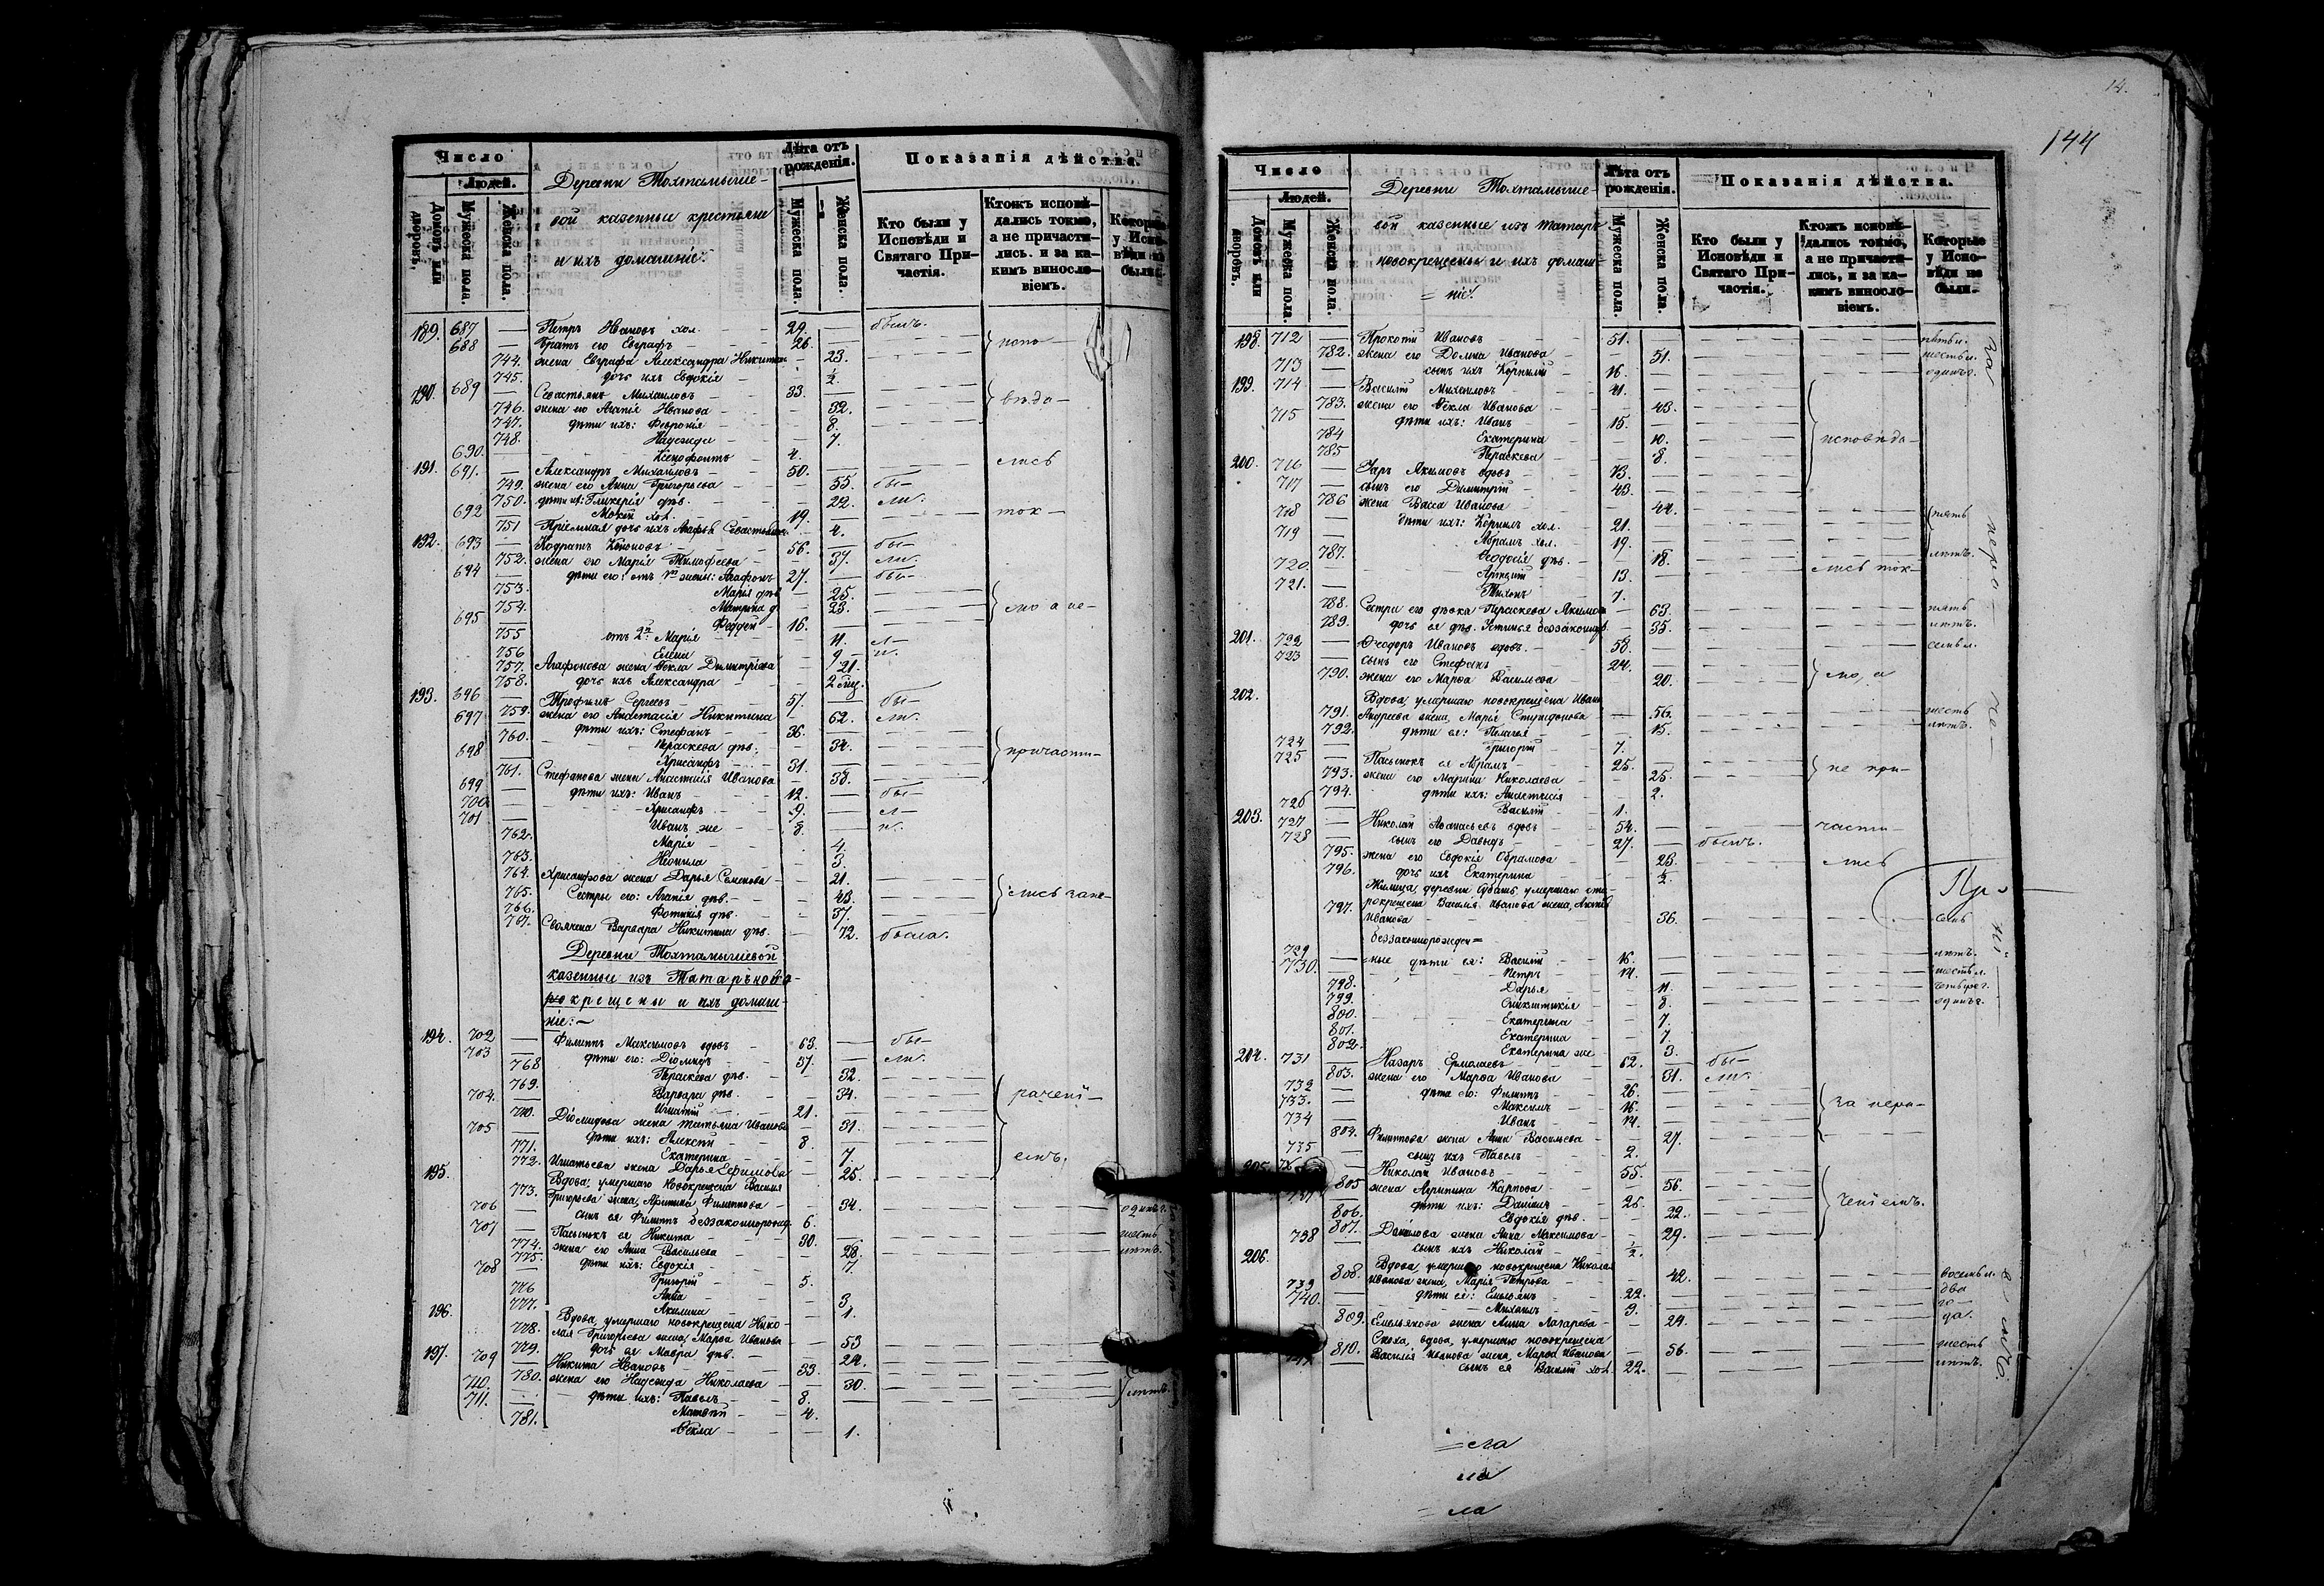 Число
Людей.
Домовъ или дворовъ.
Мужеска пола.
Женска пола.
Деревни Тохтамышевой казенные крестьяне и ихъ домашніе.
Лѣта отъ рожденія.
Мужеска пола.
Женска пола.
Показанія дѣйства.
Кто были у Исповѣди и Святаго Причастія.
Ктожъ исповѣдались токмо, а не причастились. и за какимъ винословіемъ.
189. 687 — Петръ Ивановъ хол. 29. — былъ.
688 — Братъ его Евграфъ 26. — испо-
744. жена Евграфа Александра Никитина 23.
745. дочь ихъ Евдокія ½.
190. 689 — Севастьянъ Михаиловъ 33. —
746. жена его Агапія Иванова 32. вѣда-
747. дѣти ихъ: Февронія 8.
748. Надежда 7.
690. Ксенофонтъ 4.
191. 691. — Александръ Михаиловъ 50. — лись
749. жена его Анна Григорьева 55. бы-
750. дѣти ихъ: Гликерія дѣв. 22. ли.
692 — Мокій хол. 19. ток-
751 Пріемная дочь ихъ Агафья Севастьянова 4.
192. 693 — Кодратъ Кононовъ 56. — бы-
752. жена его Марія Тимофеева 37. ли.
694 — дѣти его: отъ 1й жены: Агафонъ 27. — бы-
753. Марья дѣв. 25.
754. Матрона д. 23. мо а не-
695 — Фаддей 16.
755 отъ 2й Марія 11. л-
756 Елена 9 и.
757. Агафонова жена Ѳекла Димитріева 21.
758. дочь ихъ Александра
193. 696 — Трофимъ Сергеевъ 57. — бы-
759. жена его Анастасія Никитина 62. ли.
697 — дѣти ихъ: Стефанъ 36.
760. Параскева дѣв. 34. причасти-
698 — Хрисанфъ 31.
761. Стефанова жена Анастасія Иванова 38.
699 — дѣти ихъ: Иванъ 12. — бы-
700 — Хрисанфъ 9. — л-
701 — Иванъ же 8. — и.
762. Марія 4.
763. Неонила 3.
764. Хрисанфова жена Дарья Семенова 21.
765. Сестры его: Агапія дѣв. 43. лись за не-
766. Фотинія дѣв. 37.
767. Своячена Варвара Никитина дѣв. 72. была.
Деревни Тохтамышевой
казенные изъ Татаръ ново-
крещены и ихъ домаш-
ніе:—
194. 702 — Филиппъ Максимовъ вдовъ 63. — бы-
703 — дѣти его: Діомидъ 37. — ли.
768 Параскева дѣв. 32.
769. Варвара дѣв. 34. рачені-
704. — Игнатій 21.
770. Діомидова жена Татьяна Иванова 31.
705 — дѣти ихъ: Алексѣй 8.
771. Екатерина 7. емъ.
772. Игнатьева жена Дарья Ефимова 25.
195. Вдова, умершаго новокрещена Василія
773. Григорьева жена, Афимья Филиппова 34.
706 — сынъ ея Филиппъ беззаконнорожд. 6. одинъ г.
707 — Пасынокъ ея Никита 30. шесть
774. жена его Анна Васильева 28. лѣтъ.
775. дѣти ихъ: Евдокія 7
708 — Григорій 5.
776 Анна 3
777. Акилина 1.
196. Вдова, умершаго новокрещена Нико-
778. лая Григорьева жена, Марфа Иванова 53
779. дочь ея Мавра дѣв. 24.
197. 709 — Никита Ивановъ 33.
780. жена его Надежда Николаева 30.
710. — дѣти ихъ: Павелъ 8.
711. — Матвѣй 4. лѣтъ.
781. Ѳекла 1.
14.
144
Число
Людей.
Домовъ или дворовъ.
Мужеска пола.
Женска пола.
Деревни Тохтамышевой казенные изъ татаръ новокрещены и ихъ домаш-
= ніе.
Лѣта отъ рожденія.
Мужеска пола.
Женска пола.
Показанія дѣйства.
Кто были у Исповѣди и Святаго Причастія.
Ктожъ исповѣдались токмо, а не причастились, и за какимъ винословіемъ.
Которые у Исповѣди не были.
198. 712 — Прокопій Ивановъ 51. пять л.
782. жена его Домна Иванова 51. шесть л.
713 — сынъ ихъ Корнилій 16. одинъ г.
199. 714 — Василій Михаиловъ 41.
783. жена его Ѳекла Иванова 43.
715 — дѣти ихъ: Иванъ 15.
784 Екатерина 10. исповѣда-
785 Параскева 8.
200. 716 — Уаръ Якимовъ вдовъ 73.
717 — сынъ его Димитрій 43.
786 жена Васса Иванова 44.
718 — дѣти ихъ: Корнилъ хол. 21. пять
719 — Абрамъ хол. 19.
787. Ѳеодосія дѣв. 18. лѣтъ.
720. — Арсеній 13. лись ток-
721. — Тихонъ 7.
788. Сестра его дѣвка Параскева Якимова 63. пять
789. дочь ея дѣв. Устинья беззаконнор. 35. лѣтъ.
201. 722 — Ѳеодоръ Ивановъ вдовъ. 58. семь л.
723 — сынъ его Стефанъ 24.
790. жена его Марѳа Васильева 20. мо, а
202. Вдова, умершаго новокрещена Ивана
791. Андреева жена, Марія Спиридонова 56. шесть
792. дѣти ея: Пелагья 15. лѣтъ.
724 — Григорій 7.
725 — Пасынокъ ея Абрамъ 25. не при-
793. жена его Марина Николаева 25.
794. дѣти ихъ: Анастасія 2.
726 — Василій 1.
203. 727 — Николай Аѳанасьевъ вдовъ 54. части-
728 — сынъ его Давыдъ 27. былъ.
795. жена его Евдокія Обрамова 23. лись
796. дочь ихъ Екатерина ½.
Жилица, деревни умершаго ста-
797. рокрещена Василія Иванова жена, Агапія
Иванова 36. семь
беззаконнорожден=
729 — ные дѣти ея: Василій 16. лѣтъ.
730. — Петръ 14. шесть л.
798. Дарья 11. четыре г.
799. Синклитикія 8. одинъ г.
800. Екатерина 7.
801. Екатерина 7.
802. Екатерина же 3.
204. 731 — Назаръ Ермолаевъ 62. бы-
803. жена его Марѳа Иванова 31. ли.
732 — дѣти его: Филиппъ 26.
733. — Максимъ 16. за нера-
734 — Иванъ 14.
804. Филиппова жена Анна Васильева 27.
735 — сынъ ихъ Павелъ 2.
205. — Николай Ивановъ 55.
805 жена Агрипина Карпова 56.
737 — дѣти ихъ: Даніилъ 26. ченіемъ.
806. Евдокія дѣв. 22.
807. Данилова жена Анна Максимова 29.
738 сынъ ихъ Николай ½.
206. Вдова, умершаго новокрещена Николая
808. Иванова жена, Марія Петрова 42. восемь л.
739 — дѣти ея: Емельянъ 22. два
740. — Михаилъ 9. го-
809. Емельянова жена Анна Лазарева 24. да.
Сноха, вдова, умершаго новокрещена
810. Василія Иванова жена, Марѳа Иванова 56. шесть
741 — сынъ ея Василій хол. 22. лѣтъ.
за нера-